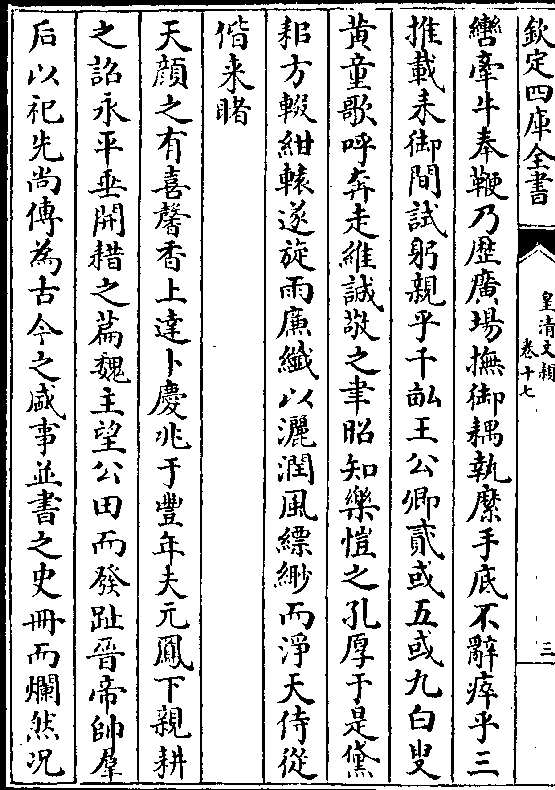 欽定四庫全書
皇清文穎
卷十七
三
轡牽牛奉鞭乃歴廣場撫御耦執縻手底不辭瘁乎三
推載耒御間試躬親乎千畝王公卿貳或五或九白叟
黄童歌呼奔走維誠敬之聿昭知樂愷之孔厚于是黛
耜方輟紺轅遂旋雨亷纖以灑潤風縹緲而淨天侍從
偕来睹
天顔之有喜馨香上達卜慶兆于豐年夫元鳳下親耕
之詔永平垂開耤之篇魏主望公田而發趾晉帝帥羣
后以祀先尚傳為古今之盛事並書之史冊而爛然况